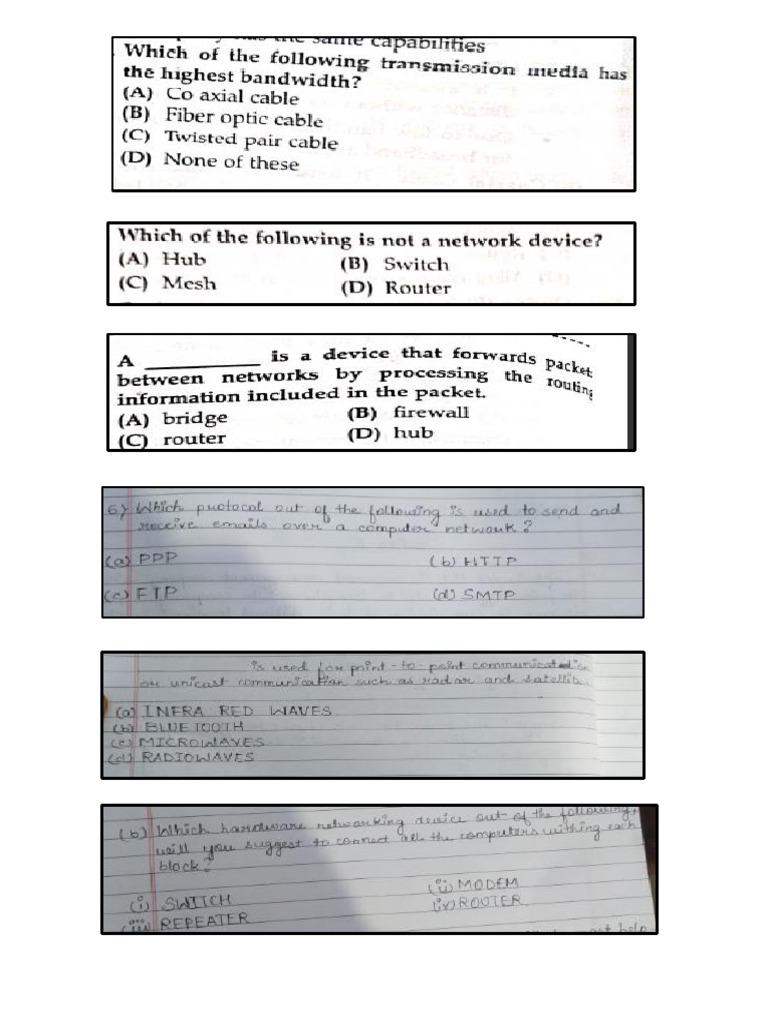 the same capabilities
Which of the following transmission media has
the highest bandwidth?
(A) Co axial cable
(B) Fiber optic cable
(C) Twisted pair cable
(D) None of these
Which of the following is not a network device?
(A) Hub (B) Switch
(C) Mesh (D) Router
A __________ is a device that forwards packet
between networks by processing the routing
information included in the packet.
(A) bridge (B) firewall
(C) router (D) hub
6) Which protocol out of the following is used to send and
receive emails over a computer network?
(a) PPP (b) HTTP
(c) FTP (d) SMTP
is used for point-to-point
or unicast communication such as radar and
(a) INFRA RED WAVES
(b) BLUETOOTH
(c) MICROWAVES
(d) RADIOWAVES
(b) Which hardware networking device out of the following,
will you suggest to connect all the computers withing each
block?
(i) SWITCH (ii) MODEM
(iii) REPEATER (iv) ROUTER
help